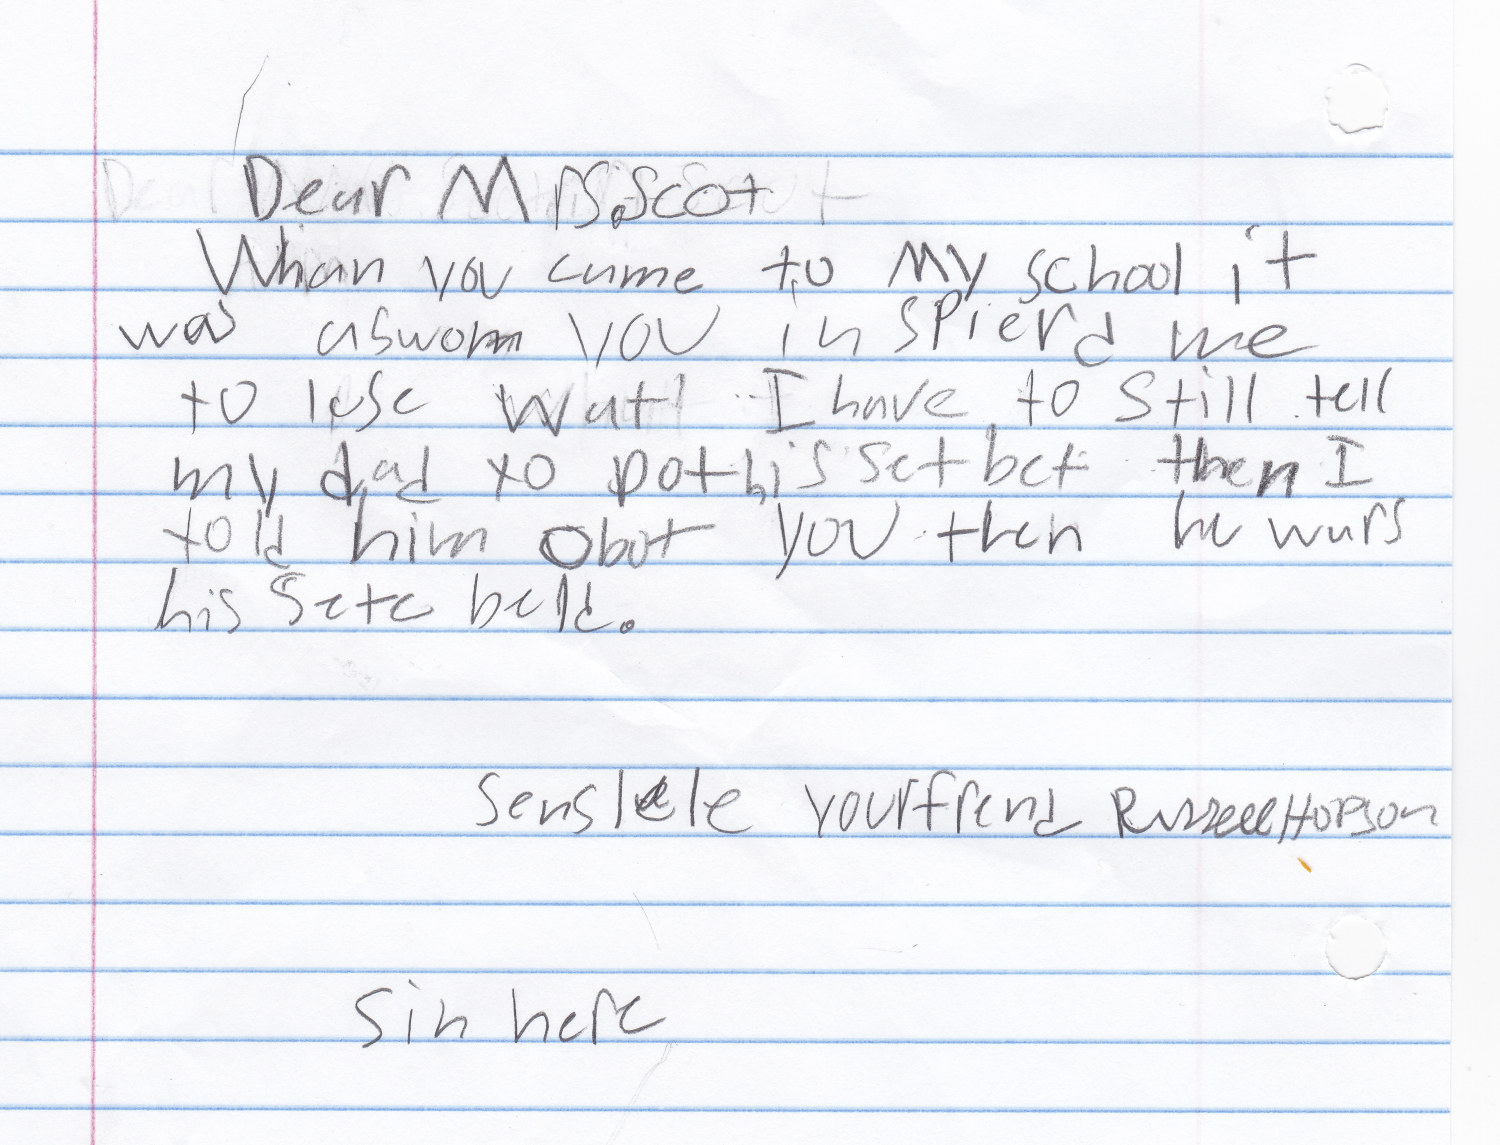 Dear Mrs.Scot
Whan you came to My school it
was aswom you inspierd me
to lose wat I have to still tell
my dad to pot his set bet then I
told him obot you then he wurs
his sete beld.
Senslele your frend Russell Hopson
Sin here